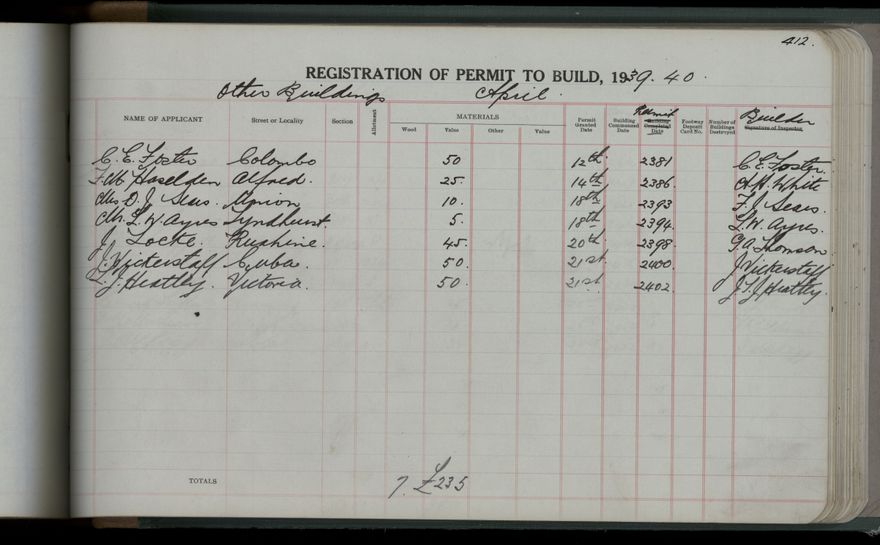 412.
REGISTRATION OF PERMIT TO BUILD, 1939.40.
Other Buildings April.
NAME OF APPLICANT Street or Locality Section Allotment MATERIALS Wood Value Other Value Permit Granted Date Building Commenced Date Permit Building Completed Date Footway Deposit Card No. Number of Buildings Destroyed Builder Signature of Inspector
C. E. Foster Colombo 50 12th. 2381 C. E. Foster.
F.W. Haselden Alfred. 25. 14th 2386. A.H. White
Mrs O. J. Sears. Union 10. 18th 2393 F. J. Sears.
Mr. L. W. Ayres Lyndhurst. 5. 18th 2394. L. W. Ayres.
J. Locke. Ruahine. 45. 20th 2398. G.A. Thomson.
J. Vickerstaff Cuba. 50. 21st. 2400. J Vickerstaff
J. Heatley. Victoria. 50. 21st. 2402. J. T. J. Heatley.
TOTALS 7. £235